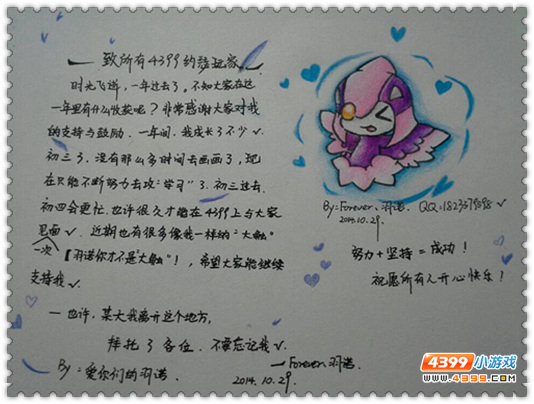 致所有4399的想玩家
时光飞逝，一年过去了。不知大家在这
一年里有什么收获呢？非常感谢大家对我
的支持与鼓励。一年间，我成长了不少√.
初三了，没有那么多时间去画画了，现
在只能不断努力去攻"学习"了。初三过去.
初四会更忙.也许很久才能在4399上与大家
见面√. 近期也有很多像我一样的"大触"
一次 【羽诺你才不是"大触"！，希望大家能继续
支持我√.
一也许，某天我离开这个地方，
拜托了各位，不要忘记我√.
By：爱你们的羽诺.
—Forever.羽诺.
2014.10.29.
By：Forever.羽诺.
2014.10.29.
努力+坚持=成功！
祝愿所有人开心快乐！
4399小游戏
www.4399.com